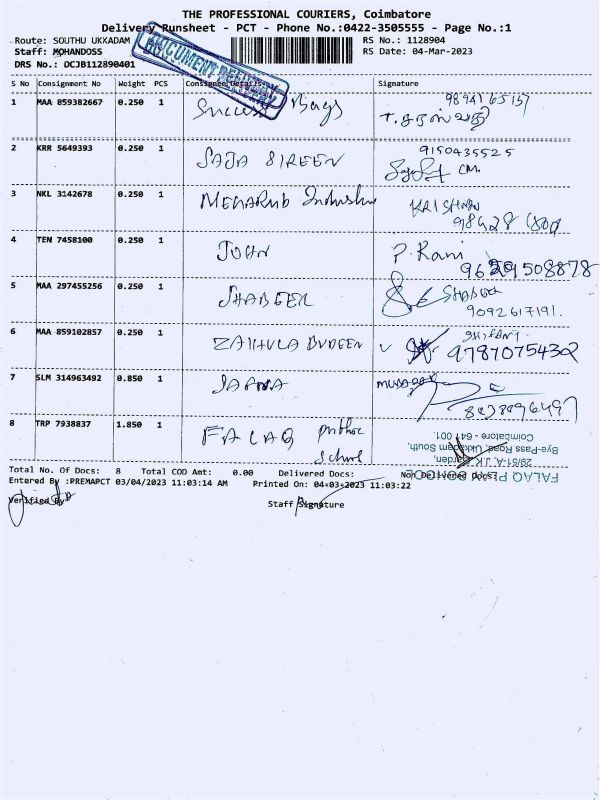 THE PROFESSIONAL COURIERS, Coimbatore
Delivery Runsheet - PCT - Phone No.:0422-3505555 - Page No.:1
Route: SOUTHU UKKADAM
RS No.: 1128904
Staff: MOHANDOSS
RS Date: 04-Mar-2023
DRS No.: DCJB112890401
DOCUMENT DELIVERY
S No Consignment No Weight PCS Consignee Details Signature
1 MAA 859382667 0.250 1 Success Bags
9894165157
2 KRR 5649393 0.250 1 SAJA SIREEN 9150435525
CM.
3 NKL 3142678 0.250 1 KRISHNA
4 TEN 7458100 0.250 1 JOHN P. Rani
5 MAA 297455256 0.250 1 SHABEER SHABEER
9092617191.
6 MAA 859102857 0.250 1 9787075432
7 SLM 314963492 0.850 1
8 TRP 7938837 1.850 1 FALAQ
FALAQ
29/51-A, J.K. Garden,
Bye-Pass Road, Ukkadam South,
Coimbatore - 641 001.
Total No. Of Docs: 8 Total COD Amt: 0.00 Delivered Docs: Non Delivered Docs:
Entered By :PREMAPCT 03/04/2023 11:03:14 AM Printed On :04-03-2023 11:03:22
Verified By
Staff Signature